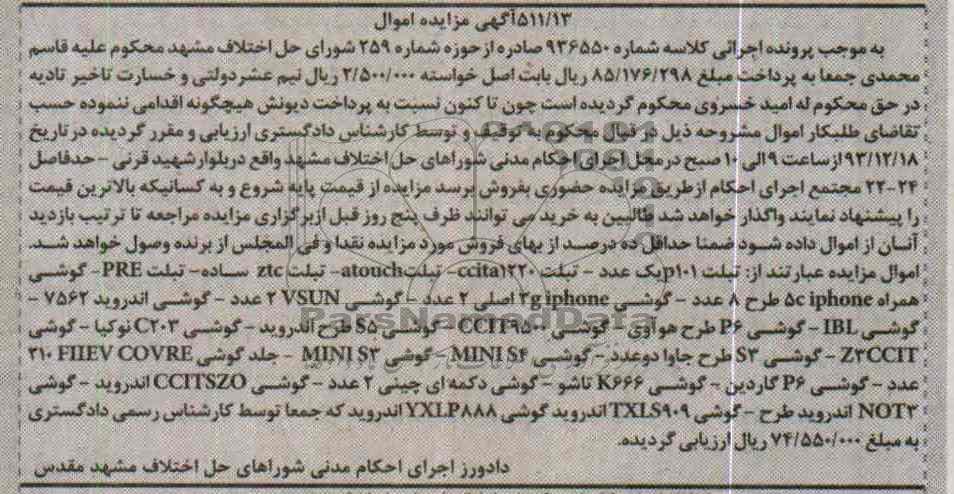 ۵۱۱/۱۳آگهی مزایده اموال
به موجب پرونده اجرائی کلاسه شماره ۹۳۶۵۵۰ صادره از حوزه شماره ۲۵۹ شورای حل اختلاف مشهد محکوم علیه قاسم
محمدی جمعا به پرداخت مبلغ ۸۵/۱۷۶/۲۹۸ ریال بابت اصل خواسته ۲/۵۰۰/۰۰۰ ریال نیم عشر دولتی و خسارت تاخیر تادیه
در حق محکوم له امید خسروی محکوم گردیده است چون تا کنون نسبت به پرداخت دیونش هیچگونه اقدامی ننموده حسب
تقاضای طلبکار اموال مشروحه ذیل در قبال محکوم به توقیف و توسط کارشناس دادگستری ارزیابی و مقرر گردیده در تاریخ
۹۳/۱۲/۱۸ از ساعت ۹ الی ۱۰ صبح در محل اجرای احکام مدنی شوراهای حل اختلاف مشهد واقع در بلوار شهید قرنی - حدفاصل
۲۲-۲۴ مجتمع اجرای احکام از طریق مزایده حضوری بفروش برسد مزایده از قیمت پایه شروع و به کسانیکه بالاترین قیمت
را پیشنهاد نمایند واگذار خواهد شد طالبین به خرید می توانند ظرف پنج روز قبل از برگزاری مزایده مراجعه تا ترتیب بازدید
آنان از اموال داده شود ضمنا حداقل ده درصد از بهای فروش مورد مزایده نقدا و فی المجلس از برنده وصول خواهد شد.
اموال مزایده عبارتند از: تبلت p۱۰۱یک عدد - تبلت ۲۲۰(ccita - تبلتatouch- تبلت ztc ساده- تبلت PRE- گوشی
همراه ۵c iphone طرح ۸ عدد - گوشی ۳g iphone اصلی ۲ عدد - گوشی VSUN ۲ عدد - گوشی اندروید ۷۵۶۲ -
گوشی IBL - گوشی P۶ طرح هوآوی - گوشی CCIT۹۵۰۰ - گوشی S۵ طرح اندروید - گوشی C۲۰۳ نوکیا - گوشی
Z۳CCIT - گوشی S۳ طرح جاوا دوعدد - گوشی MINI S۴ - گوشی MINI S۳ - جلد گوشی FIIEV COVRE ۳۱۰
عدد - گوشی P۶ گاردین - گوشی K۶۶۶ تاشو - گوشی دکمه ای چینی ۲ عدد - گوشی CCITSZO اندروید - گوشی
NOT۳ اندروید طرح - گوشی TXLS۹۰۹ اندروید گوشی YXLP۸۸۸ اندروید که جمعا توسط کارشناس رسمی دادگستری
به مبلغ ۷۴/۵۵۰/۰۰۰ ریال ارزیابی گردیده.
دادورز اجرای احکام مدنی شوراهای حل اختلاف مشهد مقدس
ParsNamadData